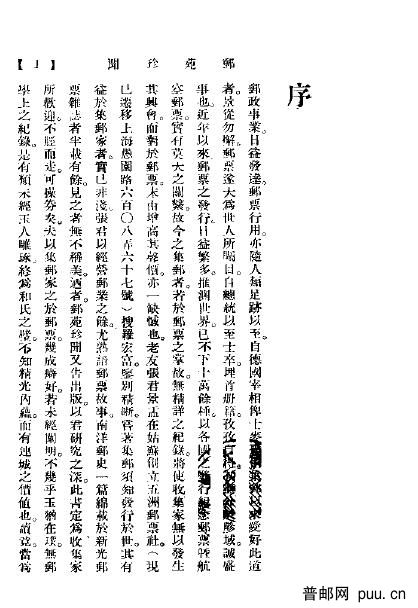 郵苑珍聞 【1】
序
郵政事業。日益發達。郵票行用。亦隨人類足跡以至。自德國宰相俾士麥愛好此道
者。景從勿懈。郵票遂大爲世人所矚目。自總統以至士卒。埋首册籍。孜孜誠盛
事也。近年以來。郵票之發行。日益繁多。推溯世界。已不下十萬餘種。以各國之發行紀念郵票。暨航
空郵票。實有莫大之關繫。故今之集郵者。若於郵票之掌故。無精詳之紀錄。將使收集家無以發生
其興會。而對於郵票。末由增高其聲價。亦一缺憾也。老友張君景盂。在姑蘇創立五洲郵票社。（現
已遷移上海愚園路六百〇八弄六十七號）搜羅宏富。鑒別精晰。嘗著集郵須知。發行於世。其有
益於集郵家者。實已非淺。張君以經營郵業之餘。尤熟諳郵票故事。南洋郵史一篇。綿載於新光郵
票雜誌者。半載有餘。見之者無不稱美。迺者郵苑珍聞。又告出版。以君硏究之深。此書定爲收集家
所歡迎。不脛而走。可操券矣。夫以集郵家之於郵票。幾成癖好。若未經闡明。不幾乎玉韞在璞。無
學上之紀錄。是有預示。經玉人雕琢。終爲和氏之璧。不知精光內蘊。而有連城之價値也。讀是當爲
普邮网 puu.cn